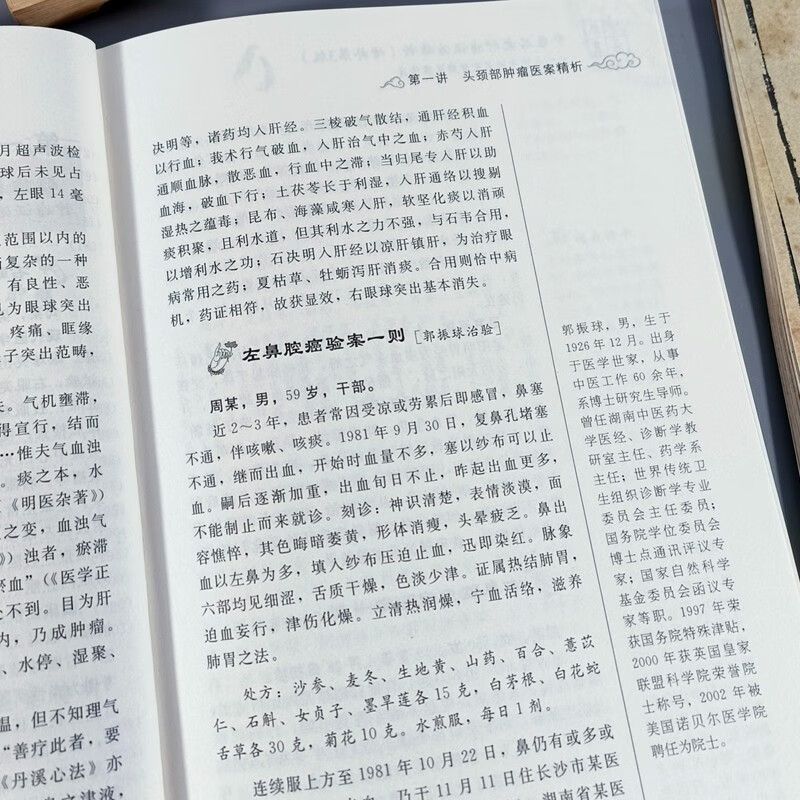 月超声波检
球后未见占
，左眼14毫
范围以内的
复杂的一种
有良性、恶
见为眼球突出
疼痛、眶缘
子突出范畴，
气机壅滞，
得宣行，结而
…惟夫气血浊
痰之本，水
《明医杂著》）
之变，血浊气
》）浊者，瘀滞
瘀血”（《医学正
不到。目为肝
内，乃成肿瘤。
、水停、湿聚、
温，但不知理气
“善疗此者，要
《丹溪心法》亦
第一讲 头颈部肿瘤医案精析
决明等，诸药均入肝经。三棱破气散结，通肝经积血
以行血；莪术行气破血，入肝治气中之血；赤芍入肝
通顺血脉，散恶血，行血中之滞；当归尾专入肝以助
血海，破血下行；土茯苓长于利湿，入肝通络以搜剔
湿热之蕴毒；昆布、海藻咸寒入肝，软坚化痰以消顽
痰积聚，且利水道，但其利水之力不强，与石韦合用，
以增利水之功；石决明入肝经以凉肝镇肝，为治疗眼
病常用之药；夏枯草、牡蛎泻肝消痰。合用则恰中病
机，药证相符，故获显效，右眼球突出基本消失。
左鼻腔癌验案一则［郭振球治验］
周某，男，59岁，干部。
近2~3年，患者常因受凉或劳累后即感冒，鼻塞
不通，伴咳嗽、咳痰。1981年9月30日，复鼻孔堵塞
不通，继而出血，开始时血量不多，塞以纱布可以止
血。嗣后逐渐加重，出血旬日不止，昨起出血更多，
不能制止而来就诊。刻诊：神识清楚，表情淡漠，面
容憔悴，其色晦暗萎黄，形体消瘦，头晕疲乏。鼻出
血以左鼻为多，填入纱布压迫止血，迅即染红。脉象
六部均见细涩，舌质干燥，色淡少津。证属热结肺胃，
迫血妄行，津伤化燥。立清热润燥，宁血活络，滋养
肺胃之法。
处方：沙参、麦冬、生地黄、山药、百合、薏苡
仁、石斛、女贞子、墨旱莲各15克，白茅根、白花蛇
舌草各30克，菊花10克。水煎服，每日1剂。
连续服上方至1981年10月22日，鼻仍有或多或
血，乃于11月11日住长沙市某医
湖南省某医
郭振球，男，生于
1926年12月。出身
于医学世家，从事
中医工作60余年，
系博士研究生导师。
曾任湖南中医药大
学医经、诊断学教
研室主任、药学系
主任；世界传统卫
生组织诊断学专业
委员会主任委员；
国务院学位委员会
博士点通讯评议专
家；国家自然科学
基金委员会函议专
家等职。1997年荣
获国务院特殊津贴，
2000年获英国皇家
联盟科学院荣誉院
士称号，2002年被
美国诺贝尔医学院
聘任为院士。